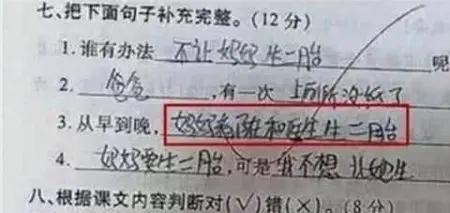 七、把下面句子补充完整。(12分)
1. 谁有办法 不让妈妈生二胎 呢
2. 爸爸 ,有一次 上厕所没纸了
3. 从早到晚, 妈妈都 和 生二胎
4. 妈妈要生二胎,可是 我不想让她生
八、根据课文内容判断对(√)错(×)。(8分)